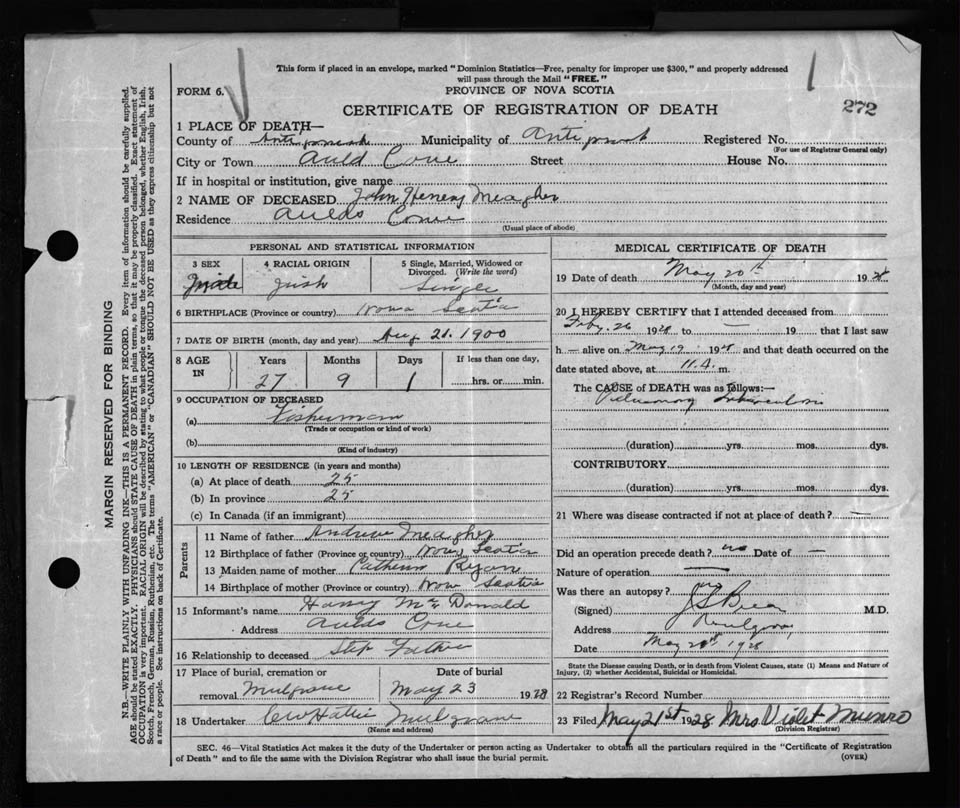 This form if placed in an envelope, marked "Dominion Statistics—Free, penalty for improper use $300," and properly addressed
will pass through the Mail "FREE."
FORM 6.
PROVINCE OF NOVA SCOTIA
CERTIFICATE OF REGISTRATION OF DEATH
272
1 PLACE OF DEATH—
County of Antigonish Municipality of Antigonish Registered No.
(For use of Registrar General only)
City or Town Auld Cove Street House No.
If in hospital or institution, give name
2 NAME OF DECEASED John Henery Meagher
Residence Aulds Cove
(Usual place of abode)
PERSONAL AND STATISTICAL INFORMATION
3 SEX 4 RACIAL ORIGIN 5 Single, Married, Widowed or
Divorced. (Write the word)
Male Irish Single
6 BIRTHPLACE (Province or country) Nova Scotia
7 DATE OF BIRTH (month, day and year) Aug 21. 1900
8 AGE IN Years Months Days If less than one day,
27 9 1 hrs. or min.
9 OCCUPATION OF DECEASED
(a) Fisherman
(Trade or occupation or kind of work)
(b)
(Kind of industry)
10 LENGTH OF RESIDENCE (in years and months)
(a) At place of death 25
(b) In province 25
(c) In Canada (if an immigrant)
Parents
11 Name of father Andrew Meagher
12 Birthplace of father (Province or country) Nova Scotia
13 Maiden name of mother Catherine Ryan
14 Birthplace of mother (Province or country) Nova Scotia
15 Informant's name Harry McDonald
Address Aulds Cove
16 Relationship to deceased Step Father
17 Place of burial, cremation or Date of burial
removal Mulgrave May 23 1928
18 Undertaker Mulgrave
(Name and address)
MEDICAL CERTIFICATE OF DEATH
19 Date of death May 20th 1928
(Month, day and year)
20 I HEREBY CERTIFY that I attended deceased from
Feby. 26 1928 to — 19 that I last saw
h — alive on May 19 1928 and that death occurred on the
date stated above, at 11 A. m.
The CAUSE of DEATH was as follows:—
Pulmonary Tuberculosis
(duration) yrs. mos. dys.
CONTRIBUTORY
(duration) yrs. mos. dys.
21 Where was disease contracted if not at place of death? —
Did an operation precede death? no Date of —
Nature of operation —
Was there an autopsy? no
(Signed) M.D.
Address Mulgrave
Date May 20th 1928
State the Disease causing Death, or in death from Violent Causes, state (1) Means and Nature of
Injury, (2) whether Accidental, Suicidal or Homicidal.
22 Registrar's Record Number
23 Filed May 21st 1928 Mrs Violet Munro
(Division Registrar)
SEC. 46—Vital Statistics Act makes it the duty of the Undertaker or person acting as Undertaker to obtain all the particulars required in the "Certificate of Registration
of Death" and to file the same with the Division Registrar who shall issue the burial permit.
(OVER)
MARGIN RESERVED FOR BINDING
N.B.—WRITE PLAINLY WITH UNFADING INK—THIS IS A PERMANENT RECORD. Every item of information should be carefully supplied.
AGE should be stated EXACTLY. PHYSICIANS should STATE CAUSE OF DEATH in plain terms, so that it may be properly classified. Exact statement of
OCCUPATION is very important. RACIAL ORIGIN will be described by stating to what people or tongue the deceased person belonged, whether English, Irish,
Scotch, French, German, Russian, Ruthenian, etc. The terms "AMERICAN" or "CANADIAN" SHOULD NOT BE USED as they express citizenship but not
a race or people. See instructions on back of Certificate.